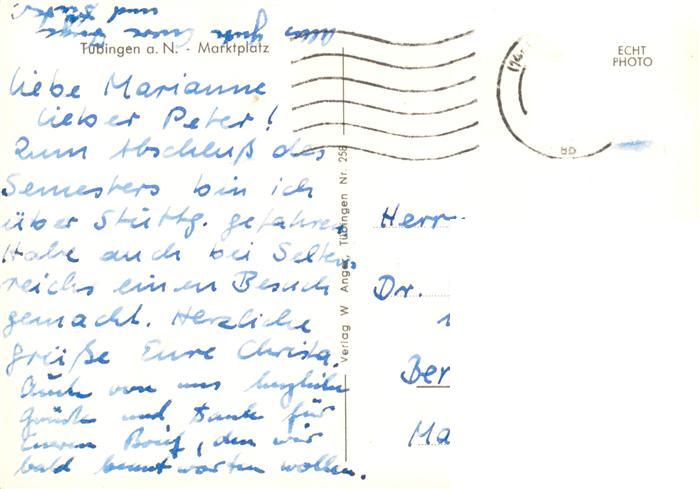 Tübingen a. N. - Marktplatz
ECHT
PHOTO
Liebe Marianne
lieber Peter!
Zum Abschluß des
Semesters bin ich
über Stuttg. gefahren
Habe auch bei Selten
reichs einen Besuch
gemacht. Herzliche
Grüße Eure Christa.
Auch von uns herzliche
Grüße und Dank für
Eueren Brief, den wir
bald beantworten wollen.
Alles Gute Euer
und
Verlag W. Anger, Tübingen Nr. 258
Herr
Dr.
Ber
Ma